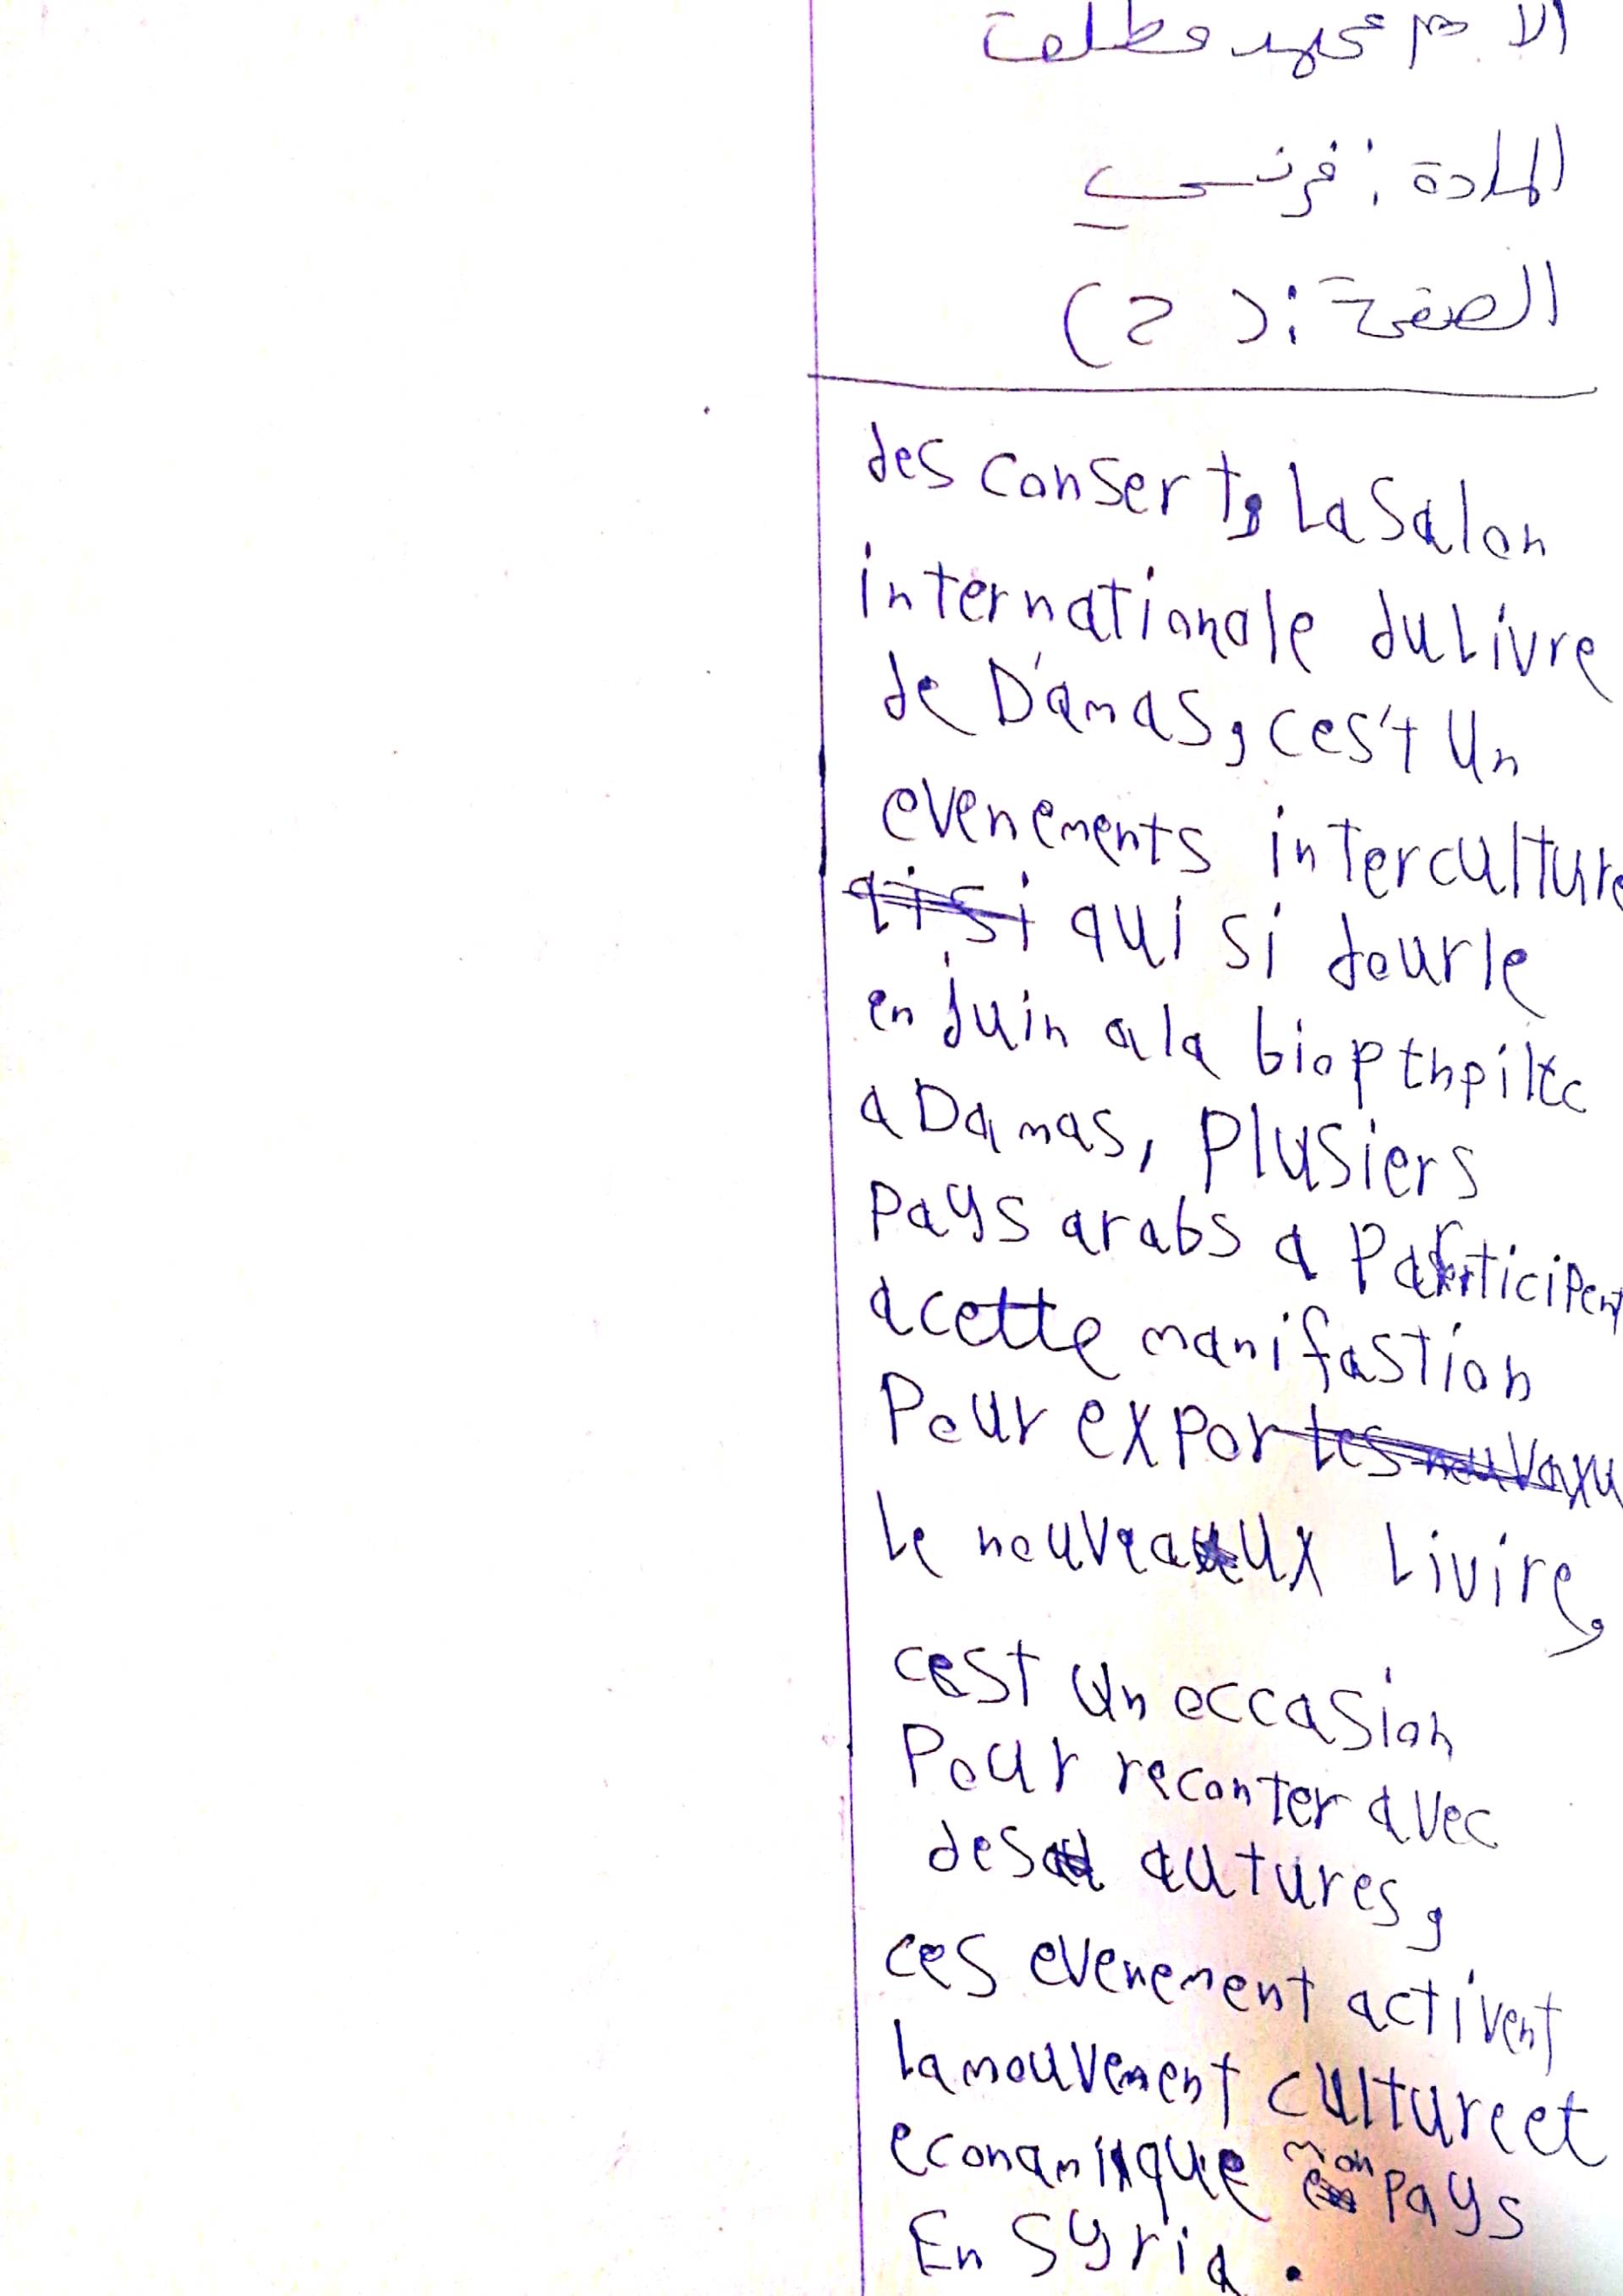 الاسم محمد مطلق
المادة : فرنسي
الصفحة : (2)
des consert, La Salon
internationale du Livre
de Damas, ces't Un
evenements interculture
qui si dourle
en juin a la biopthpiltc
a Damas, Plusiers
Pays arabs a Participent
a cette manifastion
Pour expor
Le nouveaux Livire,
cest un occasion
Pour reconter avec
des autures,
ces evenement activent
La mouvement culture et
econamique mon Pays
En Syria.